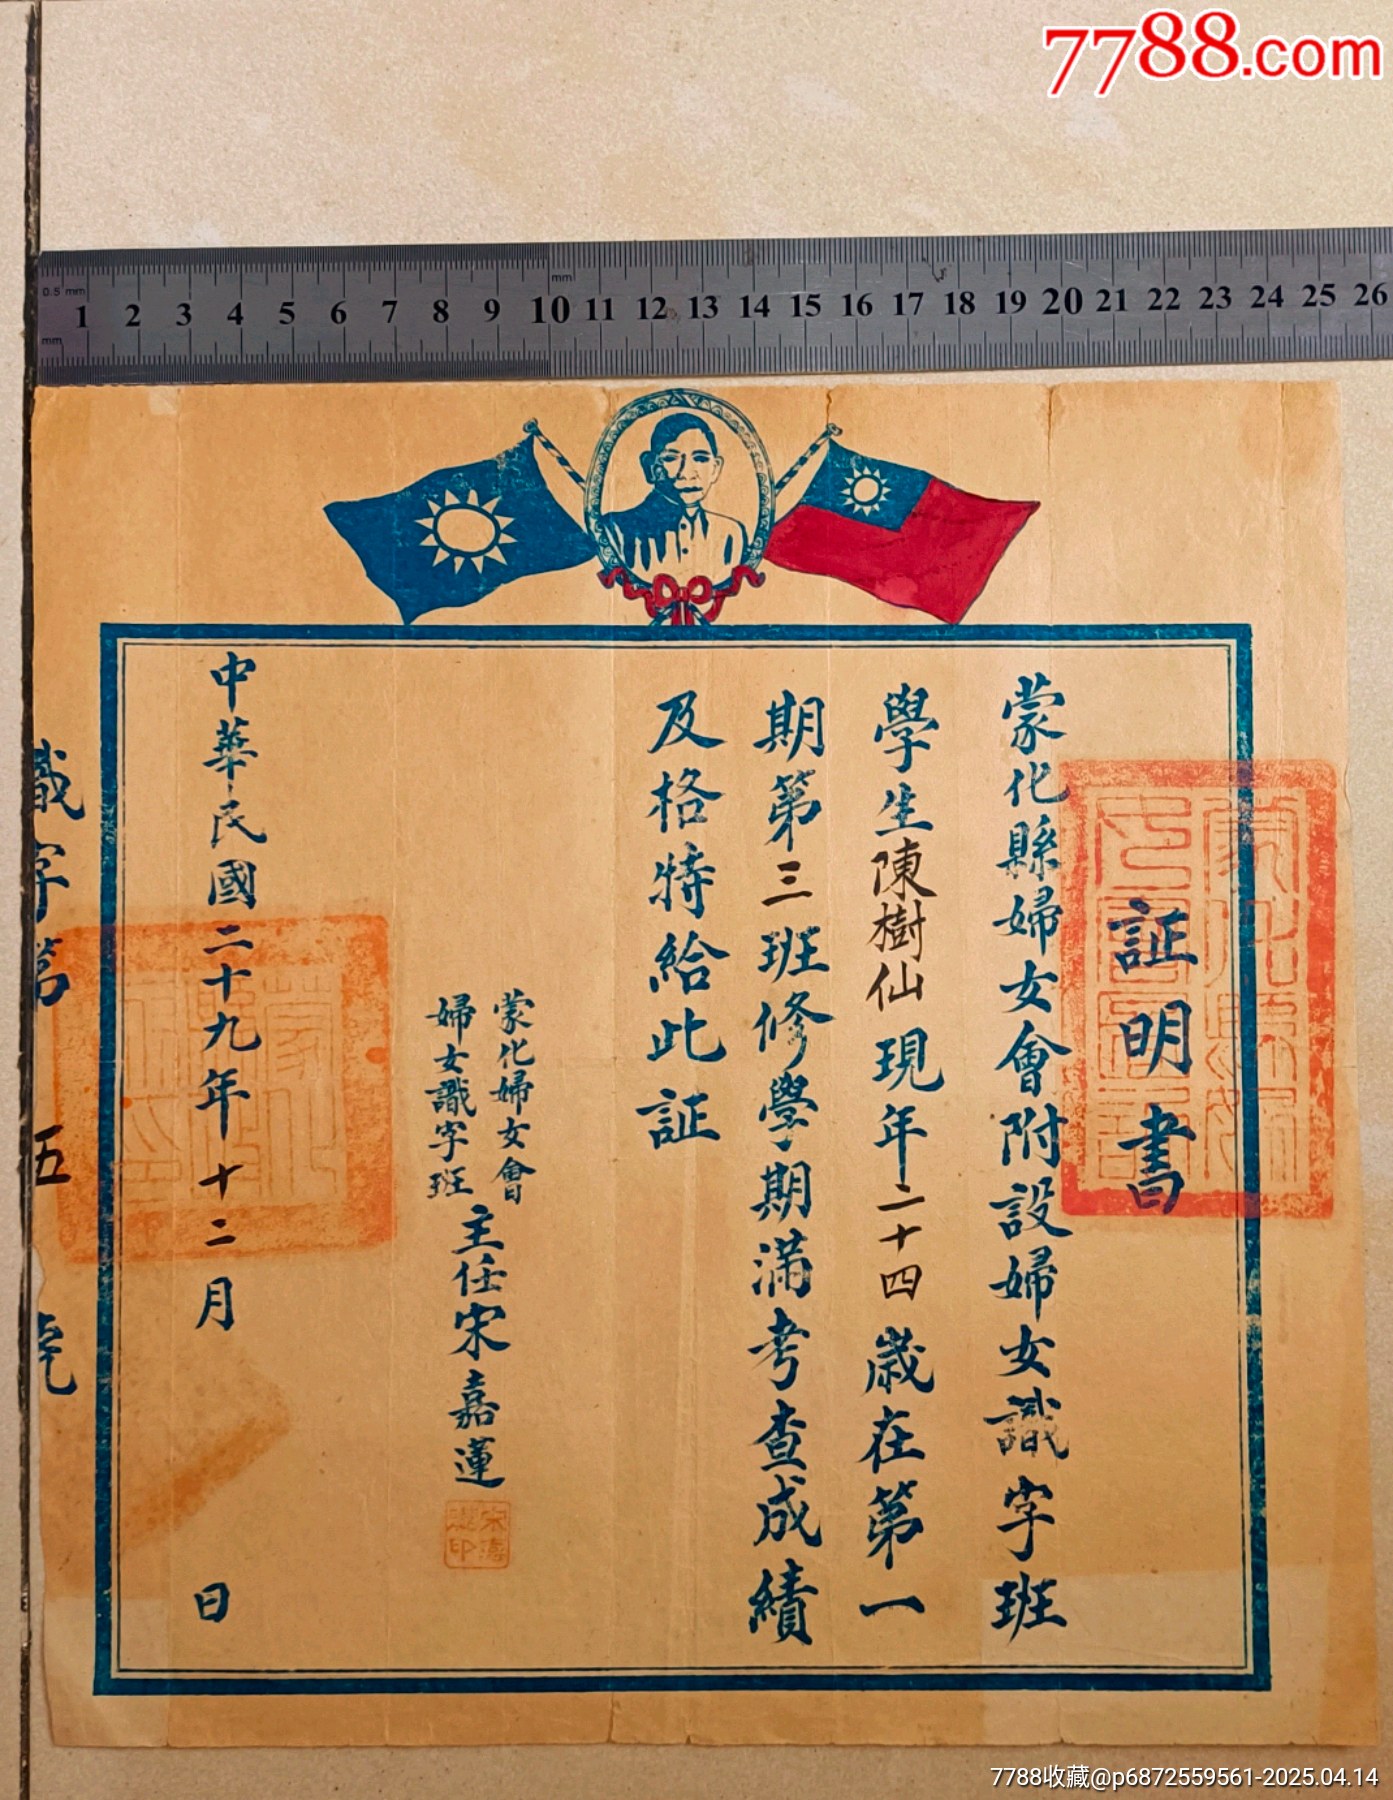 7788.com
0.5 mm
mm
mm
1 2 3 4 5 6 7 8 9 10 11 12 13 14 15 16 17 18 19 20 21 22 23 24 25 26
証明書
蒙化縣婦女會附設婦女識字班
學生陳樹仙現年二十四歲在第一
期第三班修學期滿考查成績
及格特給此証
蒙化婦女會
婦女識字班
主任宋嘉蓮
中華民國二十九年十二月 日
識字第 五 號
7788收藏@p6872559561-2025.04.14